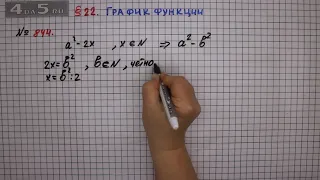 4 ДА 5.ru
§ 22. ГРАФИК ФУНКЦИИ
№ 844.
a² - 2x , x ∈ N ⇒ a² - b²
2x = b² , b ∈ N, чётно
x = b² : 2